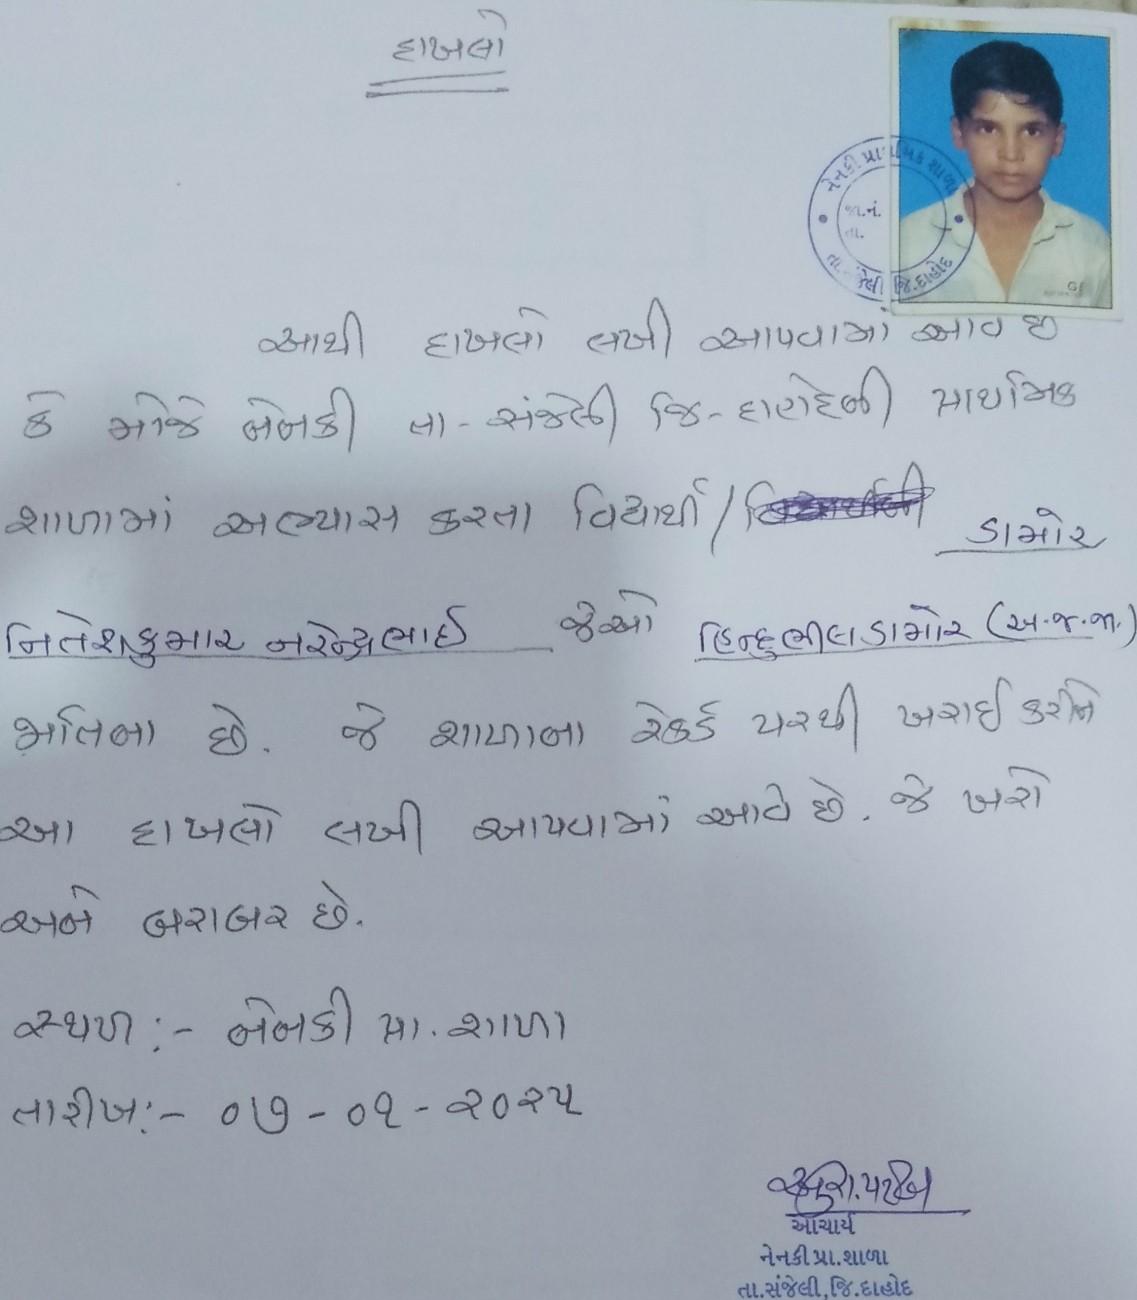 દાખલો
નેનકી પ્રાથમિક શાળા
જા.નં.
તા.
તા.સંજેલી જિ.દાહોદ
આથી દાખલો લખી આપવામાં આવે છે
કે મોજે નેનકી તા-સંજેલી જિ-દાહોદની પ્રાથમિક
શાળામાં અભ્યાસ કરતા વિદ્યાર્થી/ ડામોર
નિતેશકુમાર નરેન્દ્રભાઈ જેઓ હિન્દુ ભીલ ડામોર (અ.જ.જા.)
જાતિના છે. જે શાળાના રેકર્ડ પરથી ખરાઈ કરીને
આ દાખલો લખી આપવામાં આવે છે. જે ખરો
અને બરાબર છે.
સ્થળ :- નેનકી પ્રા. શાળા
તારીખ:- ૦૭-૦૧-૨૦૨૫
આચાર્ય
નેનકી પ્રા.શાળા
તા.સંજેલી,જિ.દાહોદ